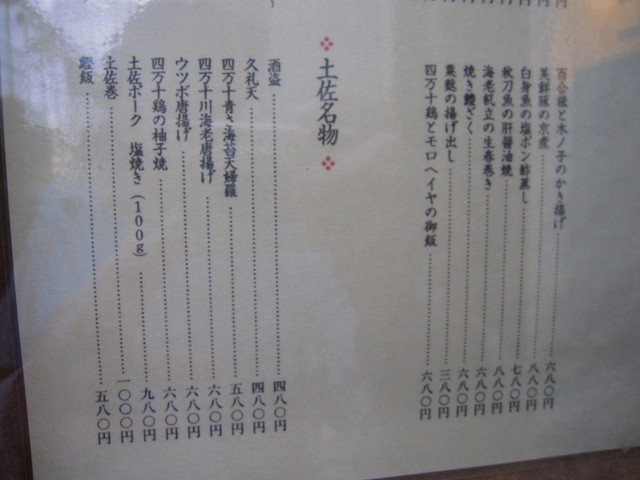 百合根と木ノ子のかき揚げ 六八〇円
美鮮豚の京煮 八八〇円
白身魚の塩ポン酢蒸し 七八〇円
秋刀魚の肝醤油焼 八八〇円
海老帆立の生春巻き 六八〇円
焼き鰻ざく 六八〇円
粟麩の揚げ出し 三八〇円
四万十鶏とモロヘイヤの御飯 六八〇円
土佐名物
酒盗 四八〇円
久礼天 四八〇円
四万十青さ海苔天婦羅 五八〇円
四万十川海老唐揚げ 六八〇円
ウツボ唐揚げ 六八〇円
四万十鶏の柚子焼 六八〇円
土佐ポーク 塩焼き(100g) 九八〇円
土佐巻 一〇〇〇円
鰹飯 五八〇円